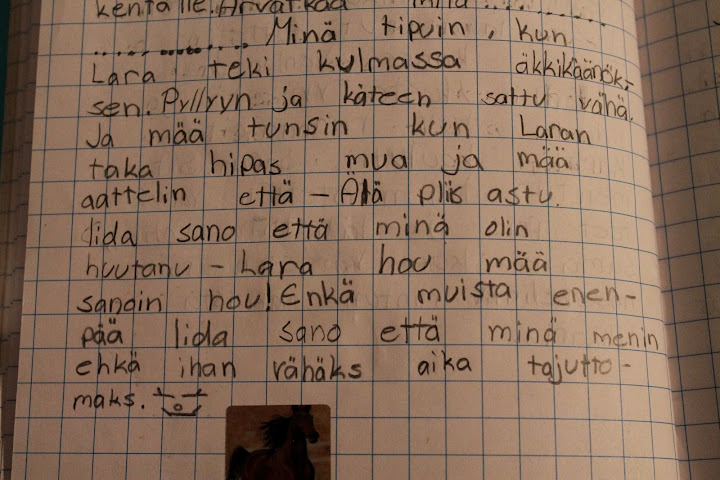 kentälle. Arvatkaa mitä ............
.................. Minä tipuin, kun
Lara teki kulmassa äkkikäänök-
sen. Pyllyyn ja käteen sattu vähä.
Ja mää tunsin kun Laran
taka hipas mua ja mää
aattelin että - Älä pliis astu.
Iida sano että minä olin
huutanu - Lara hou mää
sanoin hou! Enkä muista enen-
pää Iida sano että minä menin
ehkä ihan vähäks aika tajutto-
maks.